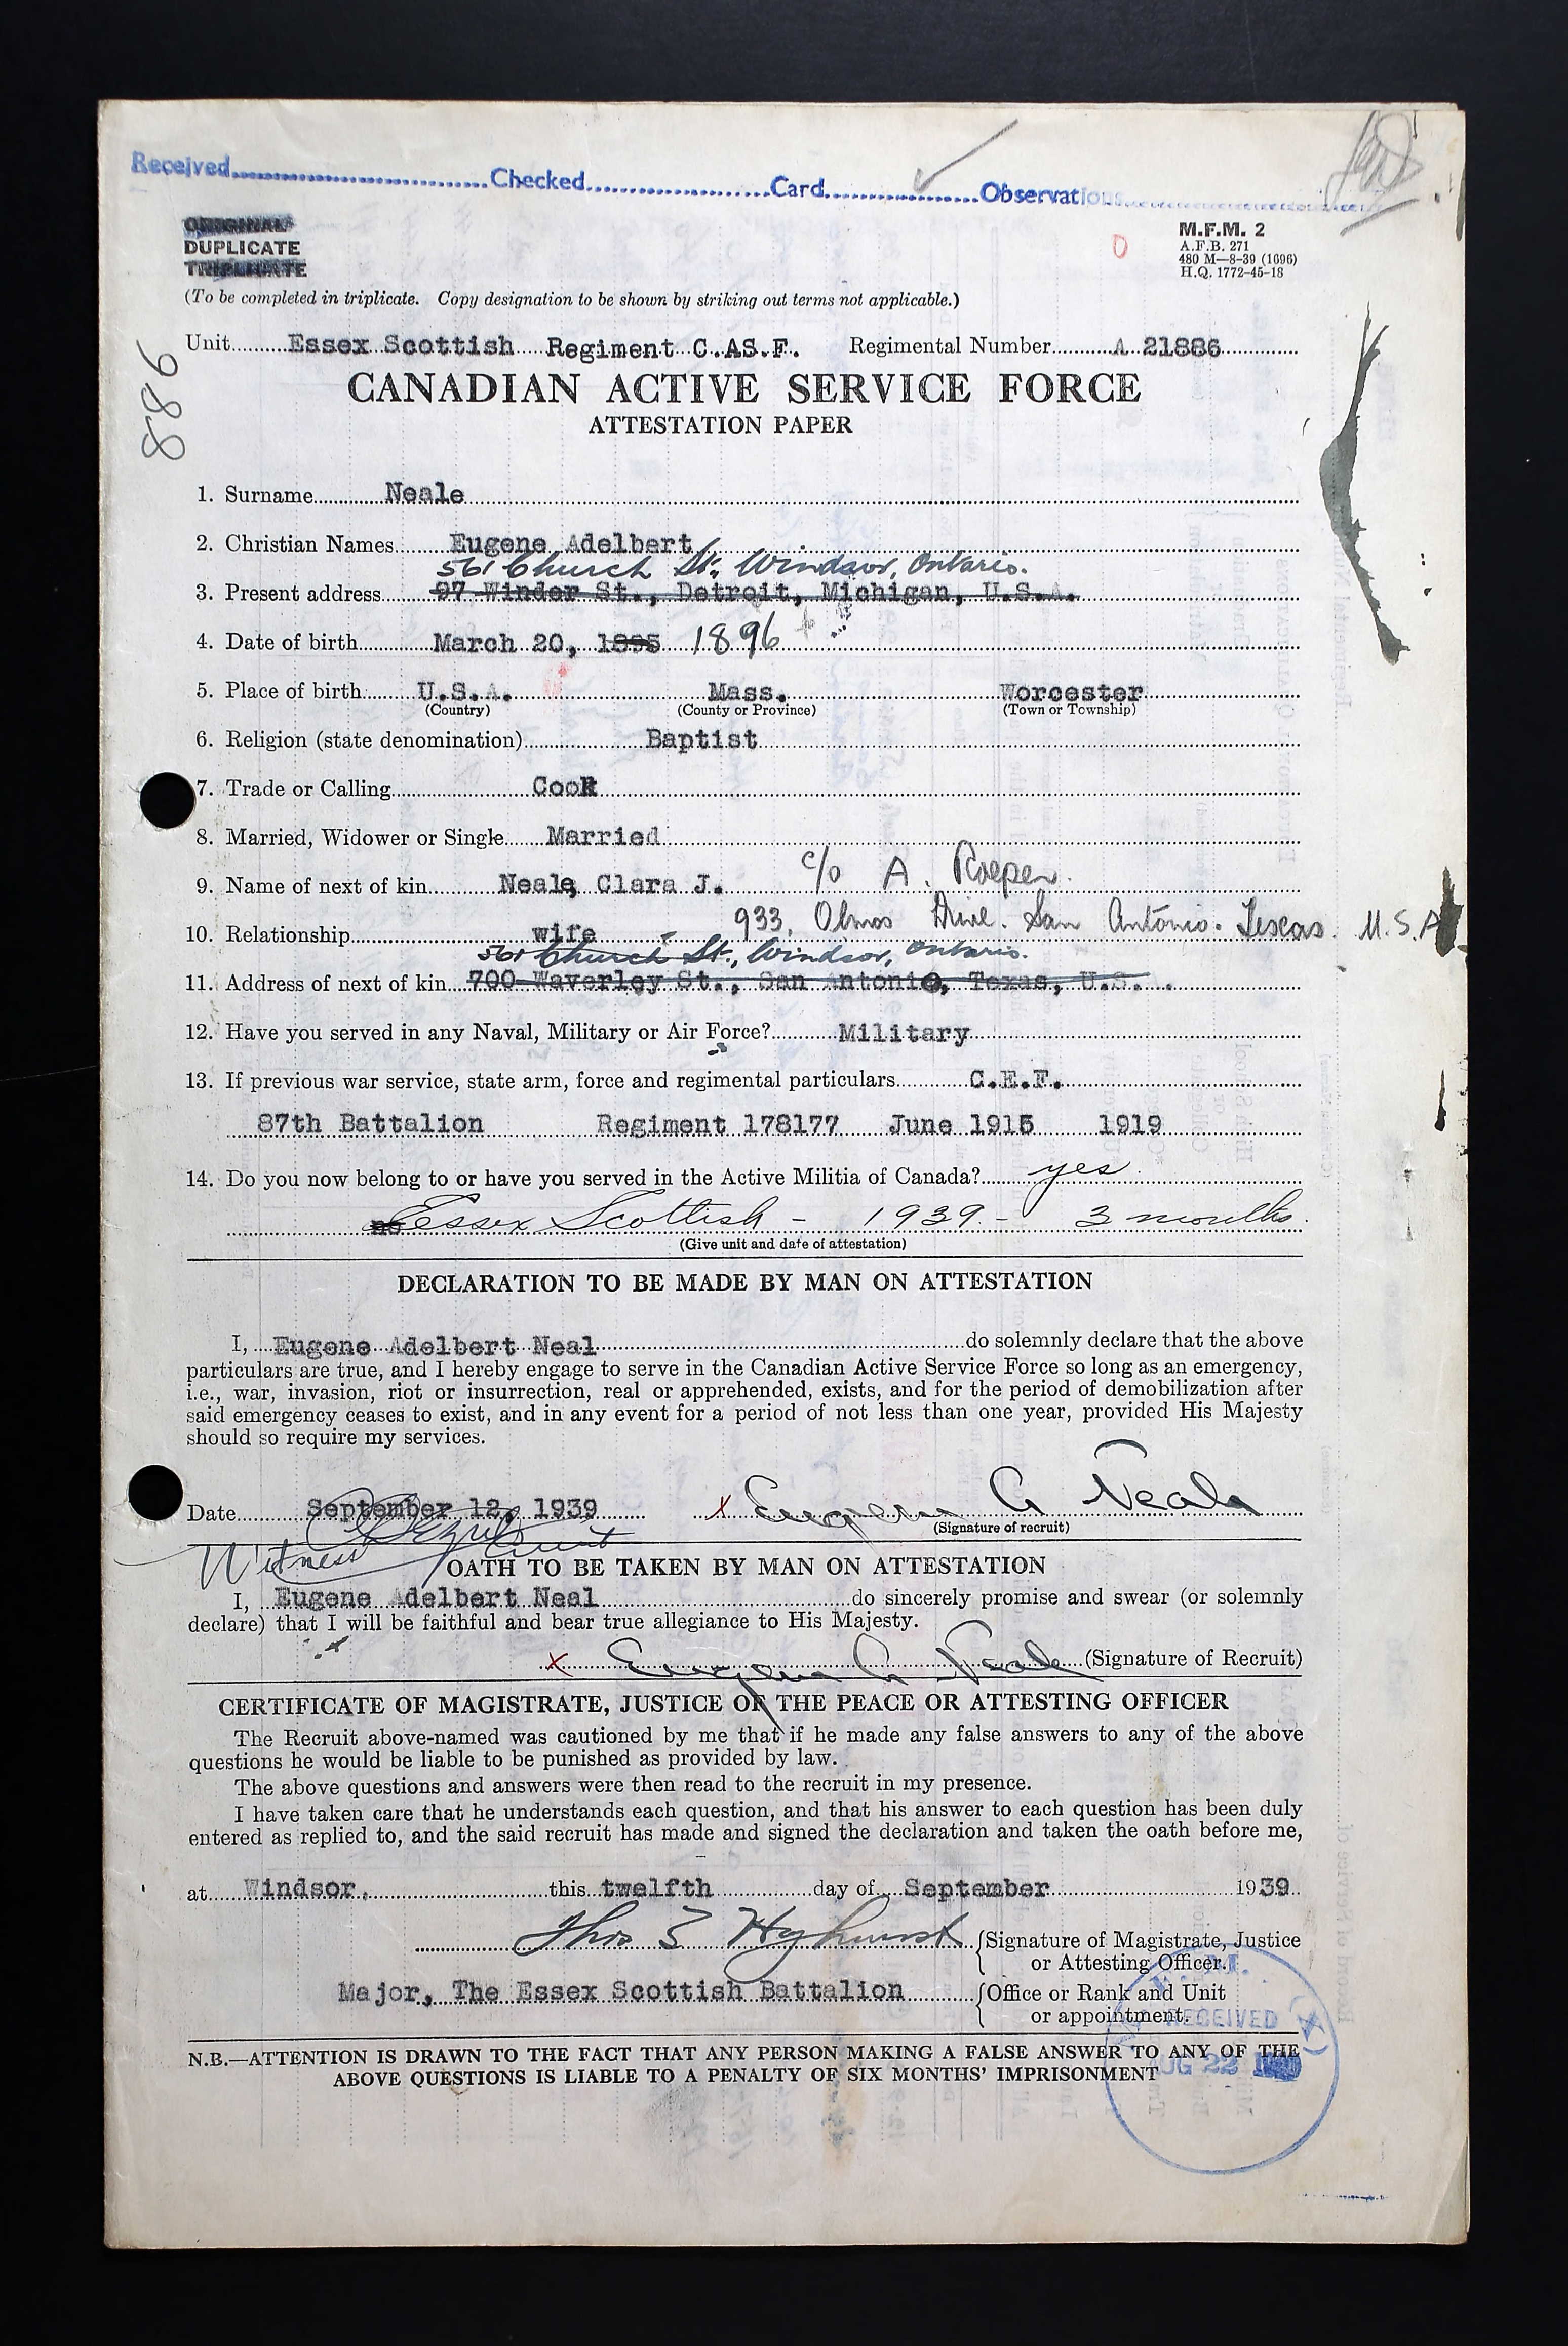 Received..............Checked..............Card..............Observations..............
ORIGINAL
DUPLICATE
TRIPLICATE
M.F.M. 2
A.F.B. 271
480 M—8-39 (1696)
H.Q. 1772-45-18
(To be completed in triplicate. Copy designation to be shown by striking out terms not applicable.)
886
Unit Essex Scottish Regiment C.AS.F. Regimental Number A 21886
CANADIAN ACTIVE SERVICE FORCE
ATTESTATION PAPER
1. Surname Neale
2. Christian Names Eugene Adelbert
561 Church St., Windsor, Ontario.
3. Present address 97 Winder St., Detroit, Michigan, U.S.A.
4. Date of birth March 20, 1895 1896
5. Place of birth U.S.A. Mass. Worcester
(Country) (County or Province) (Town or Township)
6. Religion (state denomination) Baptist
7. Trade or Calling Cook
8. Married, Widower or Single Married
9. Name of next of kin Neale, Clara J. c/o A. Roeper.
10. Relationship wife 933, Olmos Drive. San Antonio. Texas. U.S.A
561 Church St., Windsor, Ontario.
11. Address of next of kin 700 Waverley St., San Antonio, Texas, U.S. .
12. Have you served in any Naval, Military or Air Force? Military
13. If previous war service, state arm, force and regimental particulars C.E.F.
87th Battalion Regiment 178177 June 1915 1919
14. Do you now belong to or have you served in the Active Militia of Canada? yes.
no Essex Scottish - 1939 - 3 months.
(Give unit and date of attestation)
DECLARATION TO BE MADE BY MAN ON ATTESTATION
I, Eugene Adelbert Neal do solemnly declare that the above
particulars are true, and I hereby engage to serve in the Canadian Active Service Force so long as an emergency,
i.e., war, invasion, riot or insurrection, real or apprehended, exists, and for the period of demobilization after
said emergency ceases to exist, and in any event for a period of not less than one year, provided His Majesty
should so require my services.
Date September 12, 1939 x Eugene A Neale
(Signature of recruit)
Witness
OATH TO BE TAKEN BY MAN ON ATTESTATION
I, Eugene Adelbert Neal do sincerely promise and swear (or solemnly
declare) that I will be faithful and bear true allegiance to His Majesty.
x Eugene A Neale (Signature of Recruit)
CERTIFICATE OF MAGISTRATE, JUSTICE OF THE PEACE OR ATTESTING OFFICER
The Recruit above-named was cautioned by me that if he made any false answers to any of the above
questions he would be liable to be punished as provided by law.
The above questions and answers were then read to the recruit in my presence.
I have taken care that he understands each question, and that his answer to each question has been duly
entered as replied to, and the said recruit has made and signed the declaration and taken the oath before me,
at Windsor, this twelfth day of September 1939
Signature of Magistrate, Justice
or Attesting Officer.
Major, The Essex Scottish Battalion Office or Rank and Unit
or appointment.
RECEIVED
AUG 22
N.B.—ATTENTION IS DRAWN TO THE FACT THAT ANY PERSON MAKING A FALSE ANSWER TO ANY OF THE
ABOVE QUESTIONS IS LIABLE TO A PENALTY OF SIX MONTHS' IMPRISONMENT